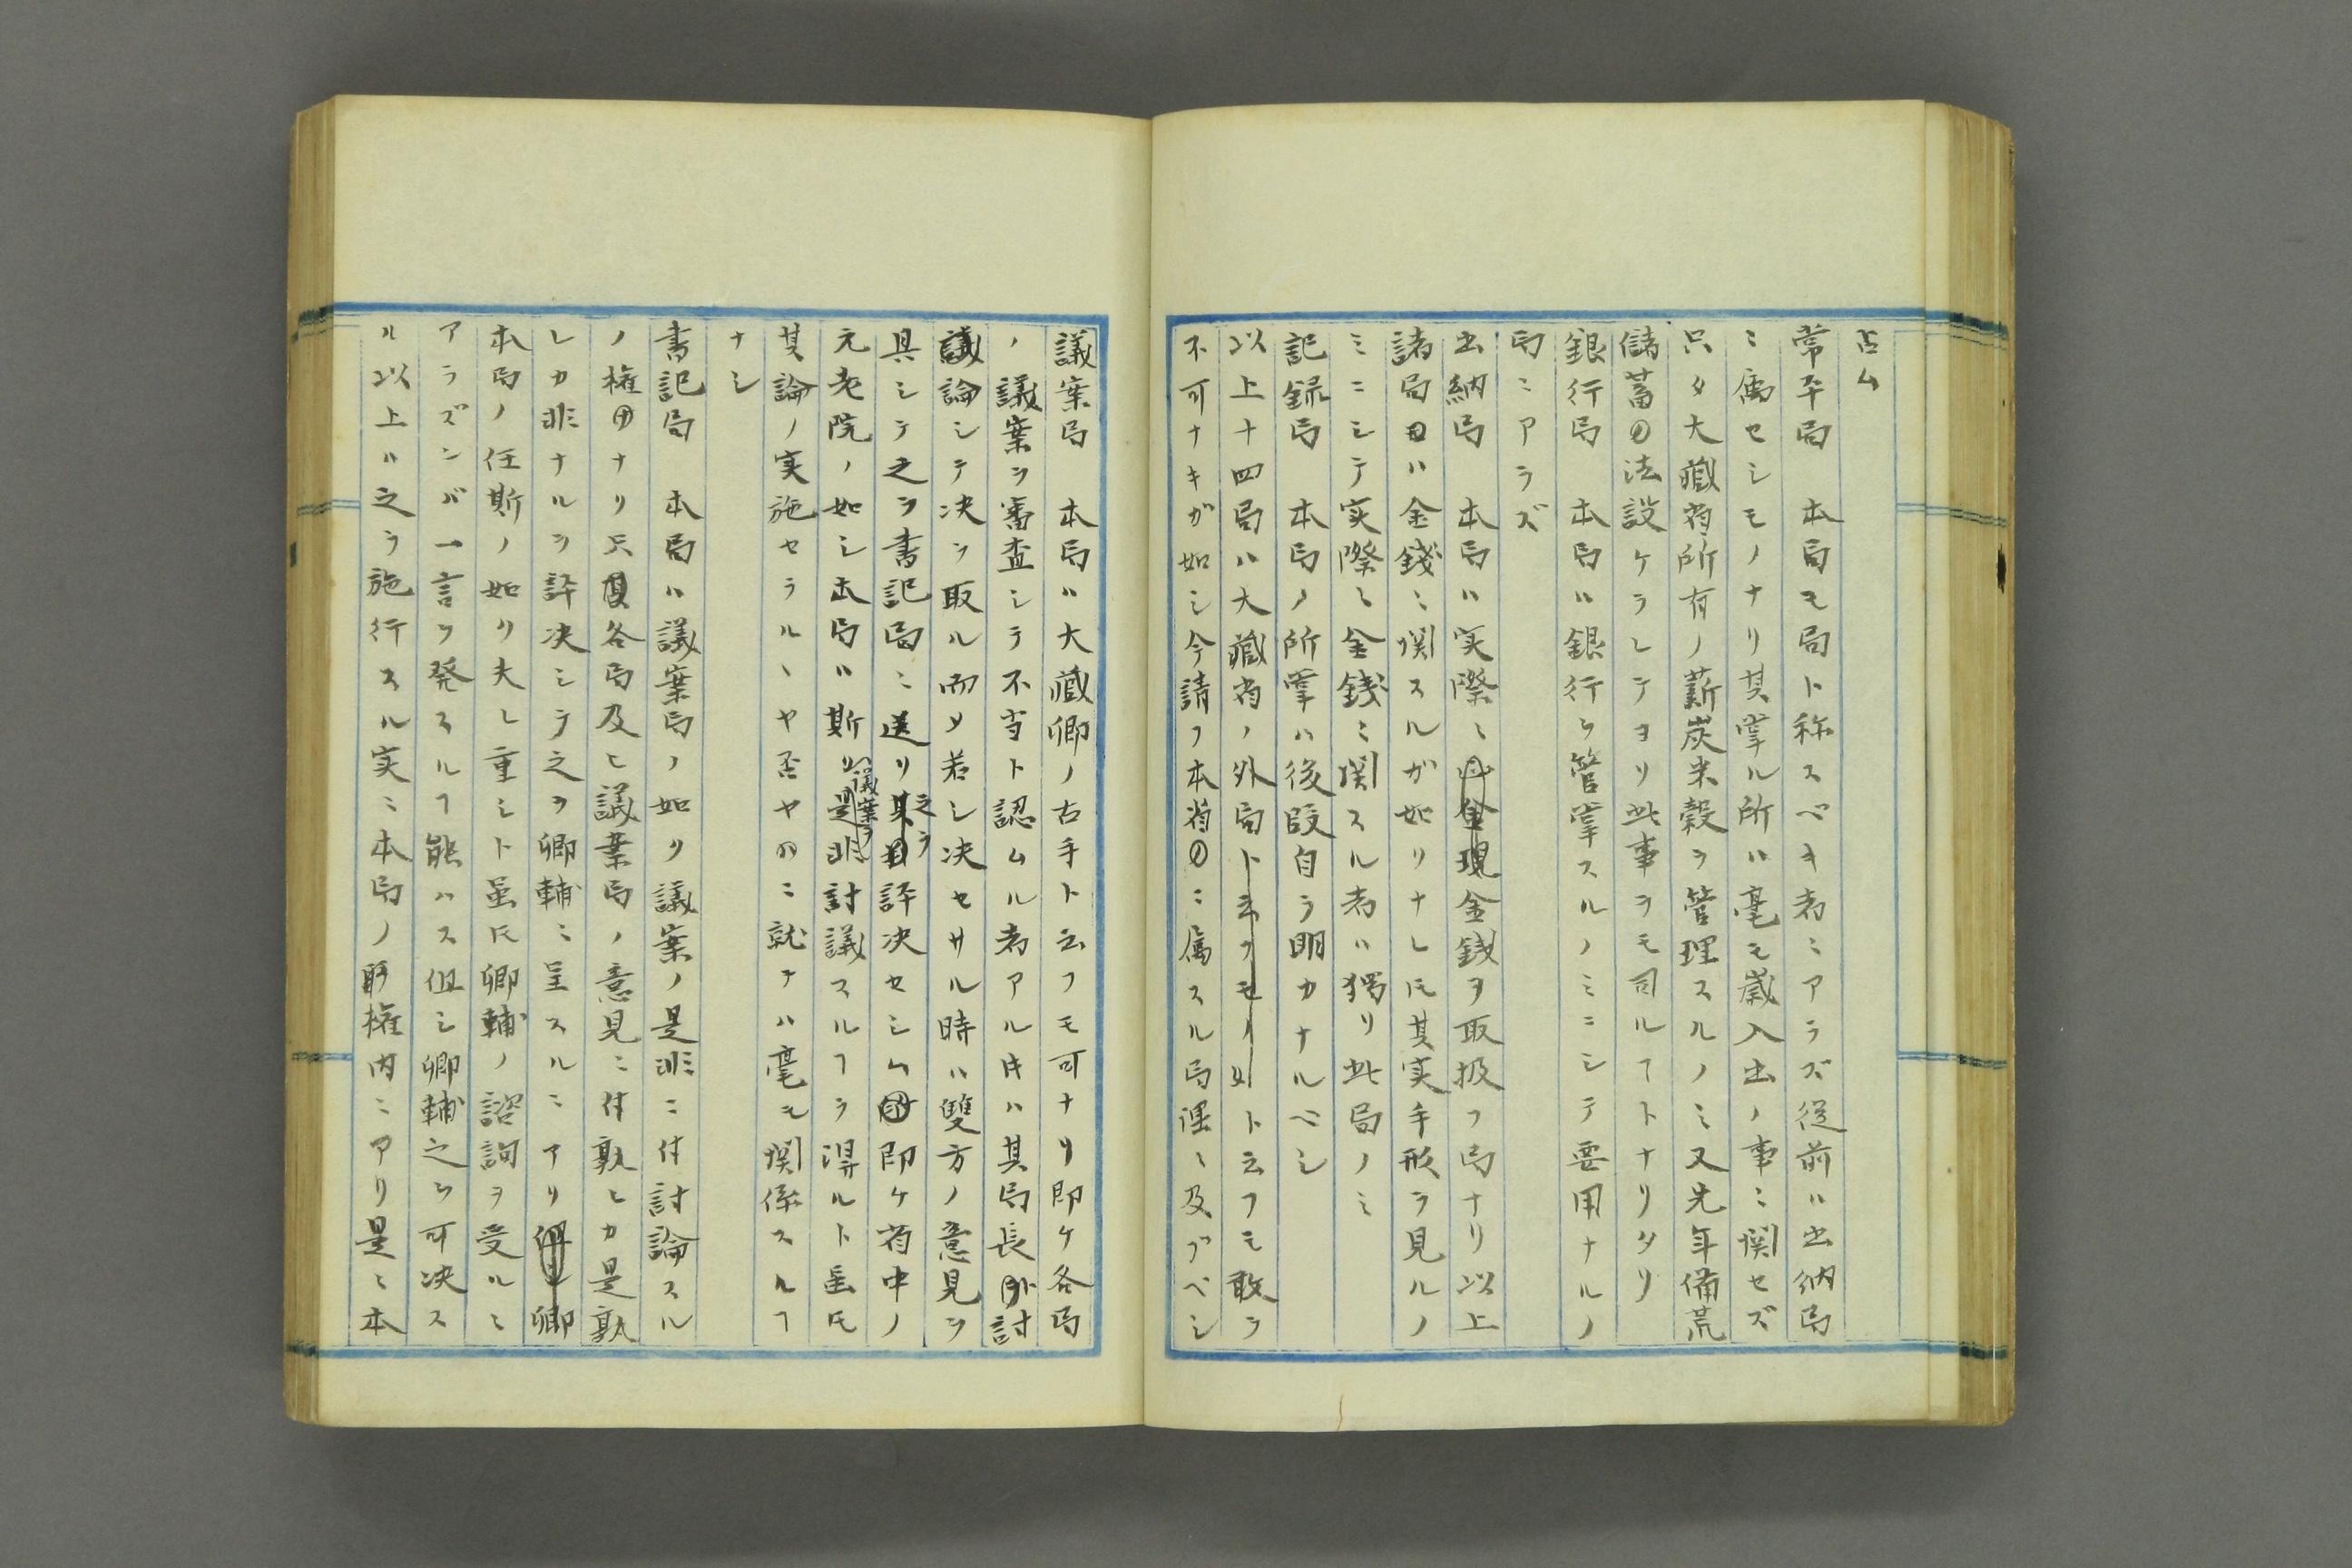 占ム
常平局　本局モ局ト称スベキ者ニアラズ従前ハ出納局
ニ属セシモノナリ其掌ル所ハ毫モ歳入出ノ事ニ関セズ
只タ大蔵省所有ノ薪炭米穀ヲ管理スルノミ又先年備荒
儲蓄ノ法設ケラレテヨリ此事ヲモ司ルヿトナリタリ
銀行局　本局ハ銀行ヲ管掌スルノミニシテ要用ナルノ
局ニアラズ
出納局　本局ハ実際ニ現金銭ヲ取扱フ局ナリ以上
諸局ハ金銭ニ関スルガ如クナレ𪜈其実手形ヲ見ルノ
ミニシテ実際ニ金銭ニ関スル者ハ独リ此局ノミ
記録局　本局ノ所掌ハ後段自ラ明カナルベシ
以上十四局ハ大蔵省ノ外局ト云フモ敢ラ
不可ナキガ如シ今請フ本省ニ属スル局課ニ及ブベシ
議案局　本局ハ大蔵卿ノ右手ト云フモ可ナリ即ケ各局
ノ議案ヲ審査シテ不当ト認ムル者アル時ハ其局長ト討
議論シテ決ヲ取ル而メ若シ決セサル時ハ双方ノ意見ヲ
具シテ之ヲ書記局ニ送リ之ヲ評決セシム即ケ省中ノ
元老院ノ如シ本局ハ斯ク議案ヲ討議スルヿヲ得ルト雖𪜈
其論ノ実施セラルヽヤ否ヤニ就テハ毫モ関係スルヿ
ナシ
書記局　本局ハ議案局ノ如ク議案ノ是非ニ付討論スル
ノ権ナク只各局及ヒ議案局ノ意見ニ付孰レカ是孰
レカ非ナルヲ評決シテ之ヲ卿輔ニ呈スルニアリ卿
本局ノ任斯ノ如ク夫レ重シト雖𪜈卿輔ノ諮詢ヲ受ルニ
アラズンバ一言ヲ発スルヿ能ハス但シ卿輔之ヲ可決ス
ル以上ハ之ヲ施行スル実ニ本局ノ職権内ニアリ是ニ本